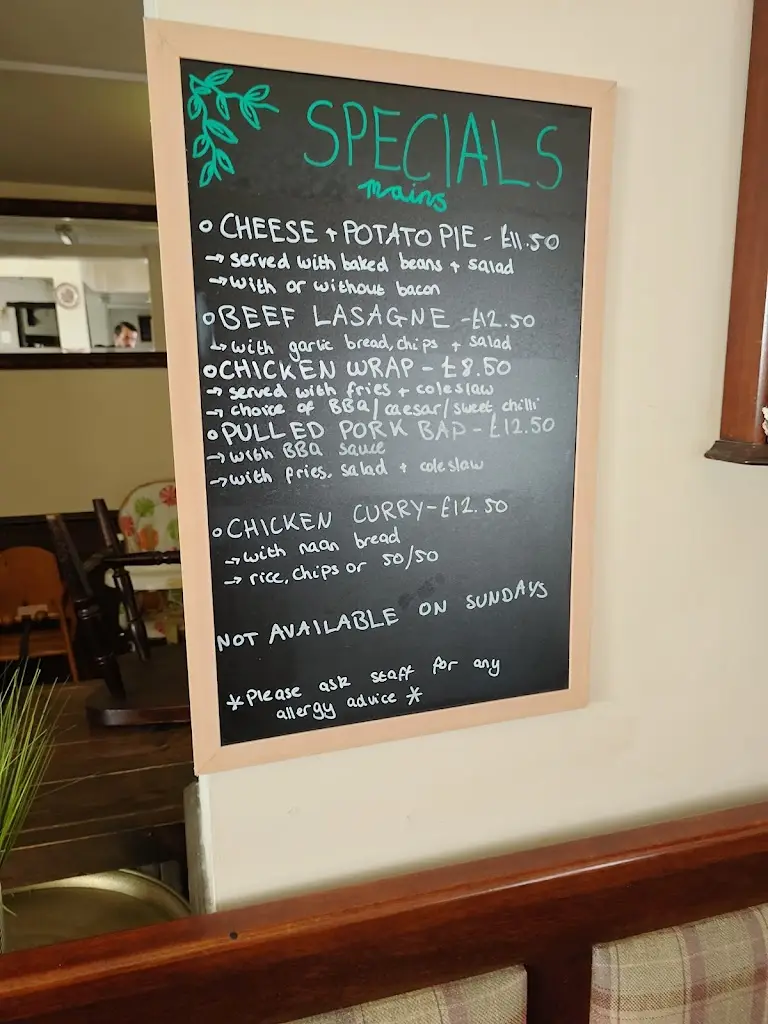 SPECIALS
mains
o CHEESE + POTATO PIE - £11.50
→ served with baked beans + salad
→ with or without bacon
o BEEF LASAGNE - £12.50
↳ with garlic bread, chips + salad
o CHICKEN WRAP - £8.50
→ served with fries + coleslaw
→ choice of BBQ/caesar/sweet chilli
o PULLED PORK BAP - £12.50
→ with BBQ sauce
→ with fries, salad + coleslaw
o CHICKEN CURRY - £12.50
→ with naan bread
→ rice, chips or 50/50
NOT AVAILABLE ON SUNDAYS
*Please ask staff for any
allergy advice *